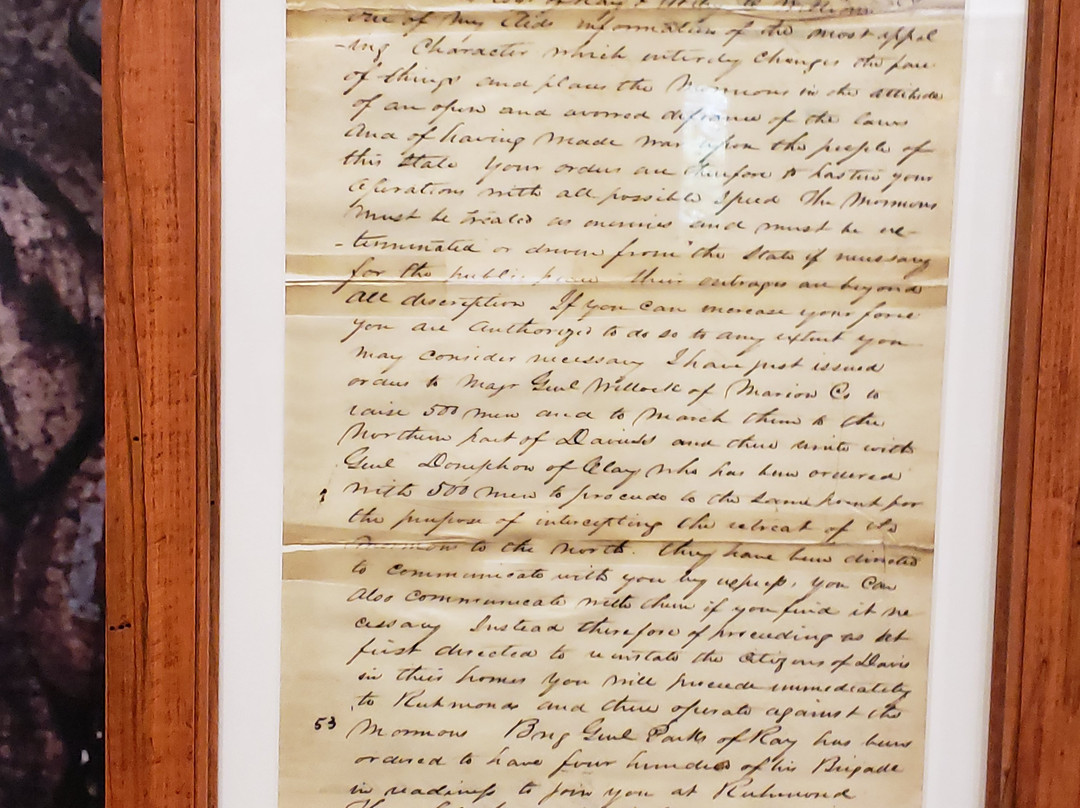 one of my Aids information of the most appal
-ing Character which entirely changes the face
of things and places the Mormons in the attitude
of an open and avowed defiance of the laws
And of having made war upon the people of
this State Your orders are therefore to hasten your
operations with all possible Speed The Mormons
must be treated as enemies and must be ex-
-terminated or driven from the State if necessary
for the public peace their outrages are beyond
all description If you can increase your force
you are Authorized to do so to any extent you
may consider necessary I have just issued
orders to Majr Genl Willock of Marion Co to
raise 500 men and to march them to the
Northern part of Daviess and there unite with
Genl Doniphon of Clay who has been ordered
with 500 men to proceede to the same point for
the purpose of intercepting the retreat of the
Mormons to the North. They have been directed
to communicate with you by express, you can
Also communicate with them if you find it ne
cessary Instead therefore of proceeding as at
first directed to reinstate the Citizens of Davis
in their homes you will proceede immediately
to Richmond and there operate against the
53 Mormons Brig Genl Parks of Ray has been
ordered to have four hundred of his Brigade
in readiness to join you at Richmond